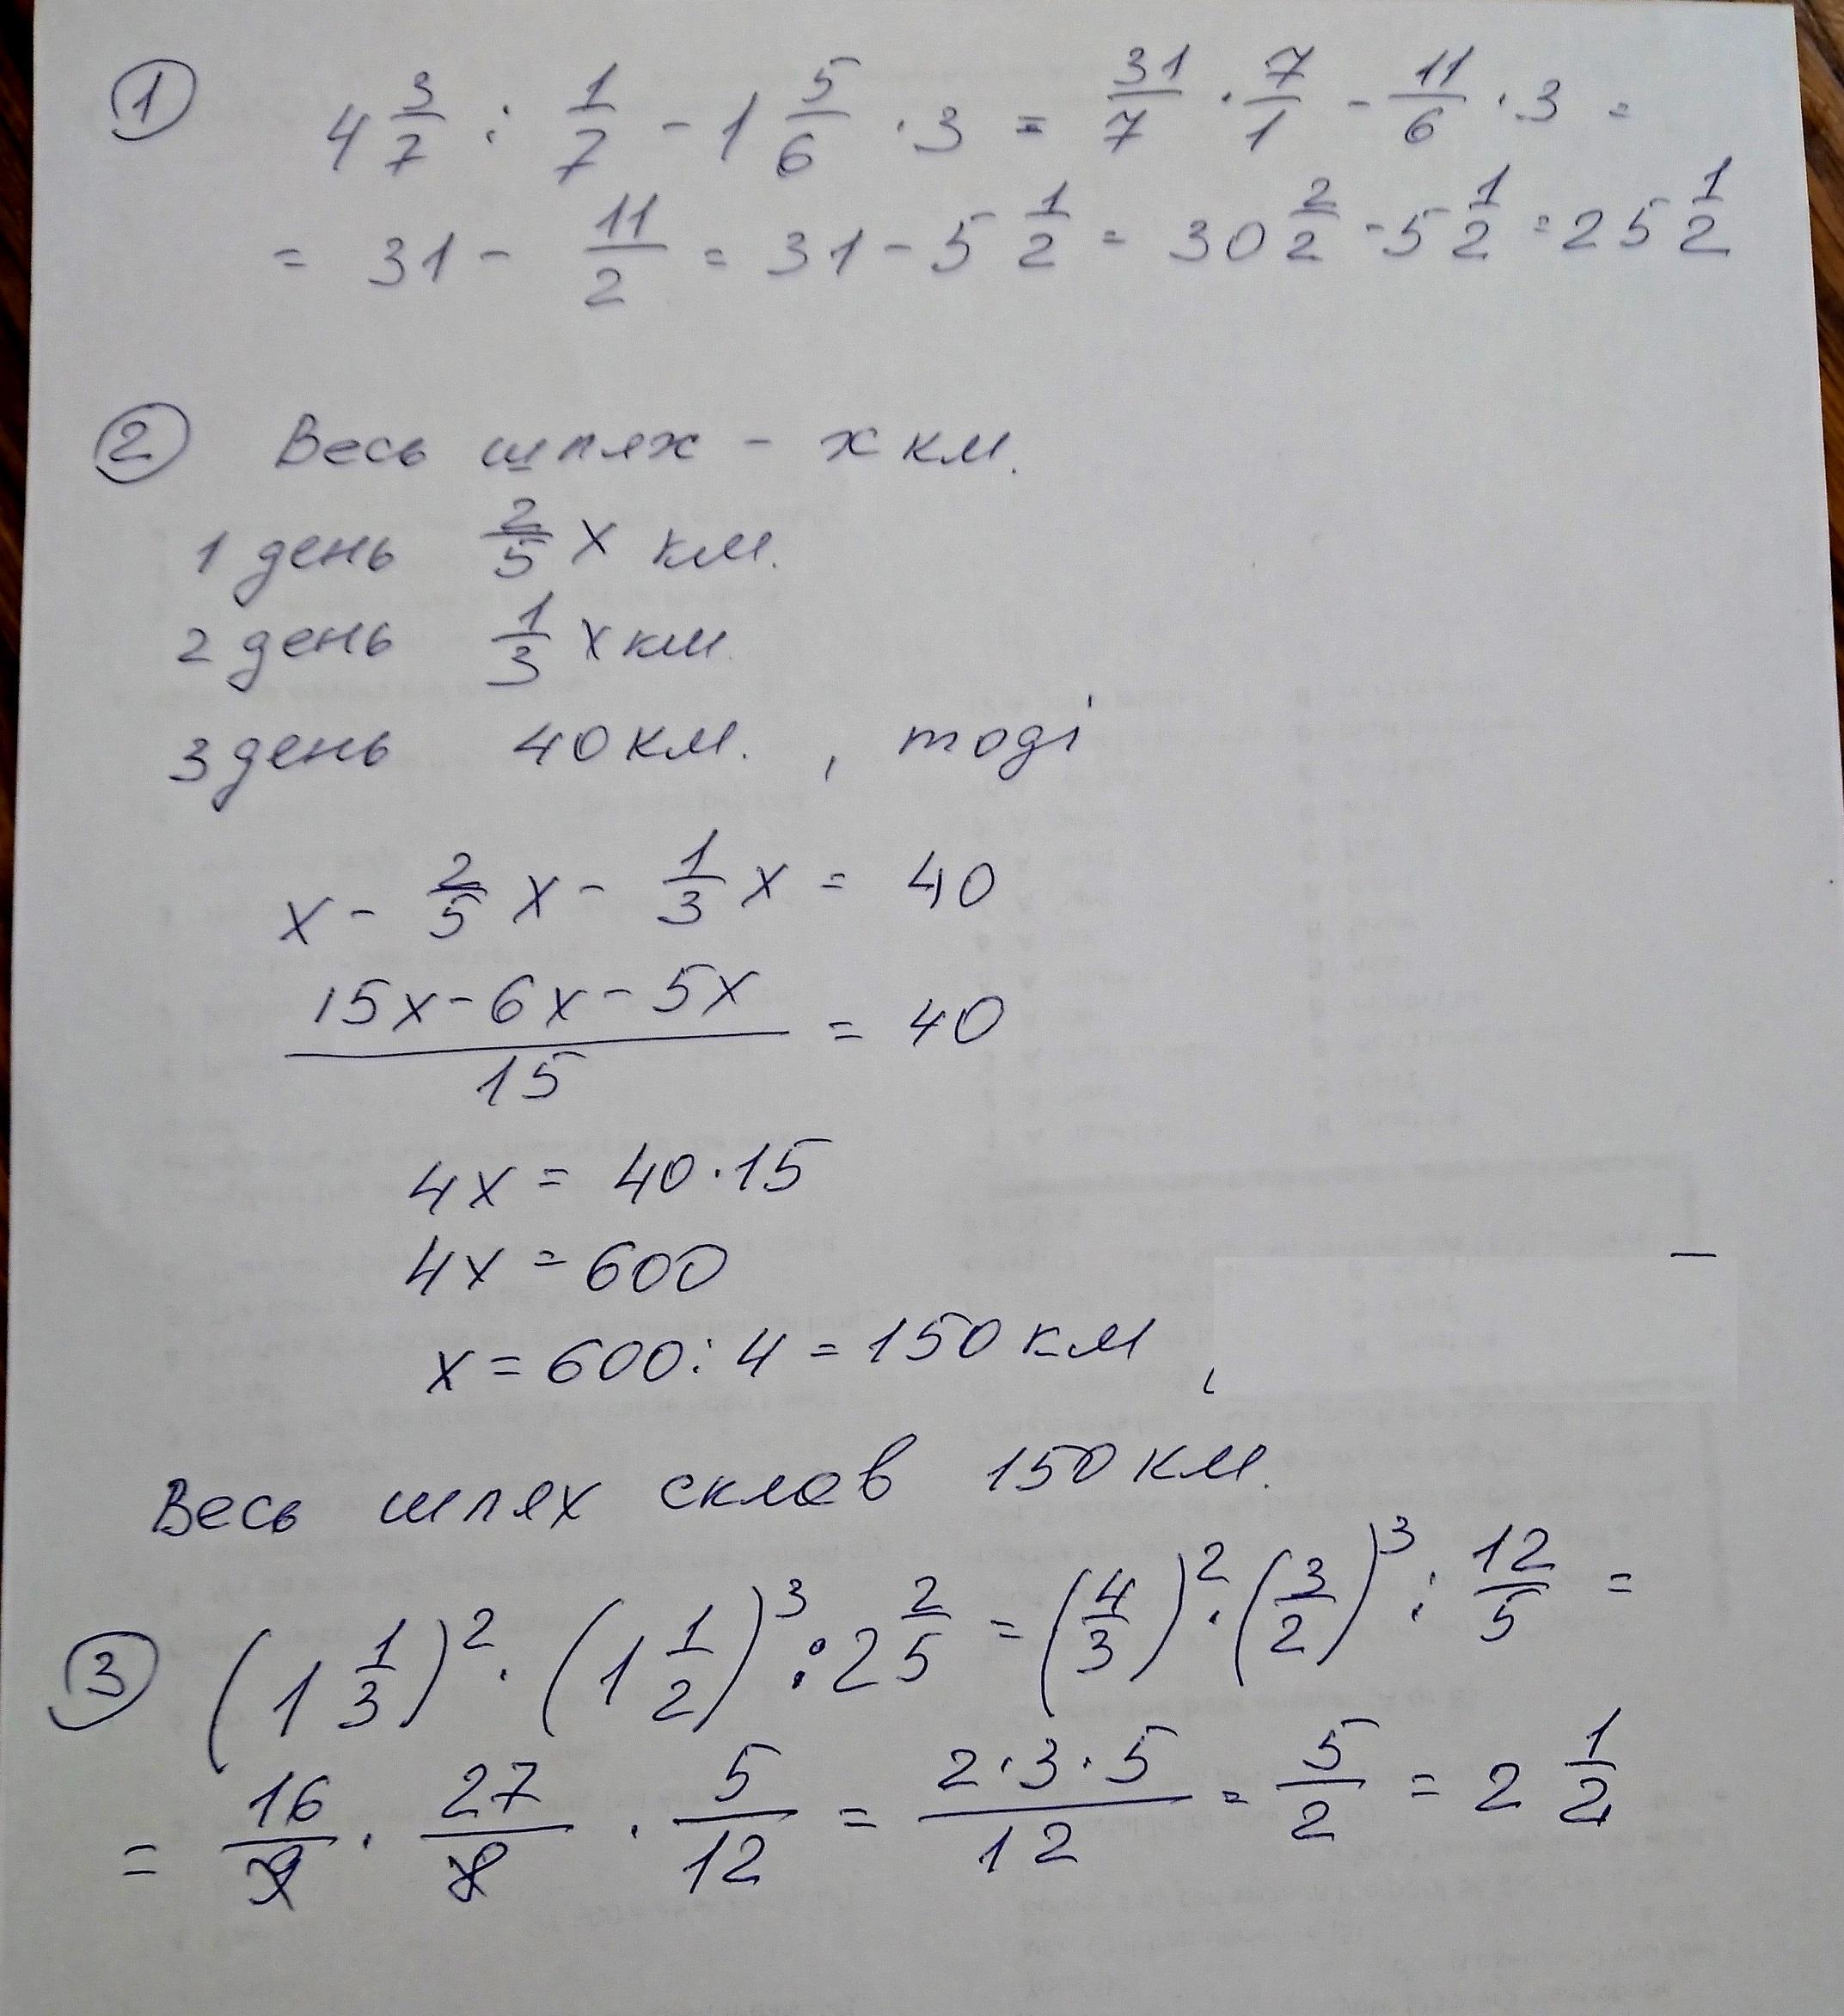 ① 4 3/7 : 1/7 - 1 5/6 · 3 = 31/7 · 7/1 - 11/6 · 3 =
= 31 - 11/2 = 31 - 5 1/2 = 30 2/2 - 5 1/2 = 25 1/2
② Весь шлях - x км.
1 день 2/5 x км.
2 день 1/3 x км
3 день 40 км. , тоді
x - 2/5 x - 1/3 x = 40
(15x - 6x - 5x)/15 = 40
4x = 40 · 15
4x = 600
x = 600 : 4 = 150 км,
Весь шлях склав 150 км.
③ (1 1/3)² · (1 1/2)³ : 2 2/5 = (4/3)² · (3/2)³ : 12/5 =
= 16/9 · 27/8 · 5/12 = (2 · 3 · 5)/12 = 5/2 = 2 1/2